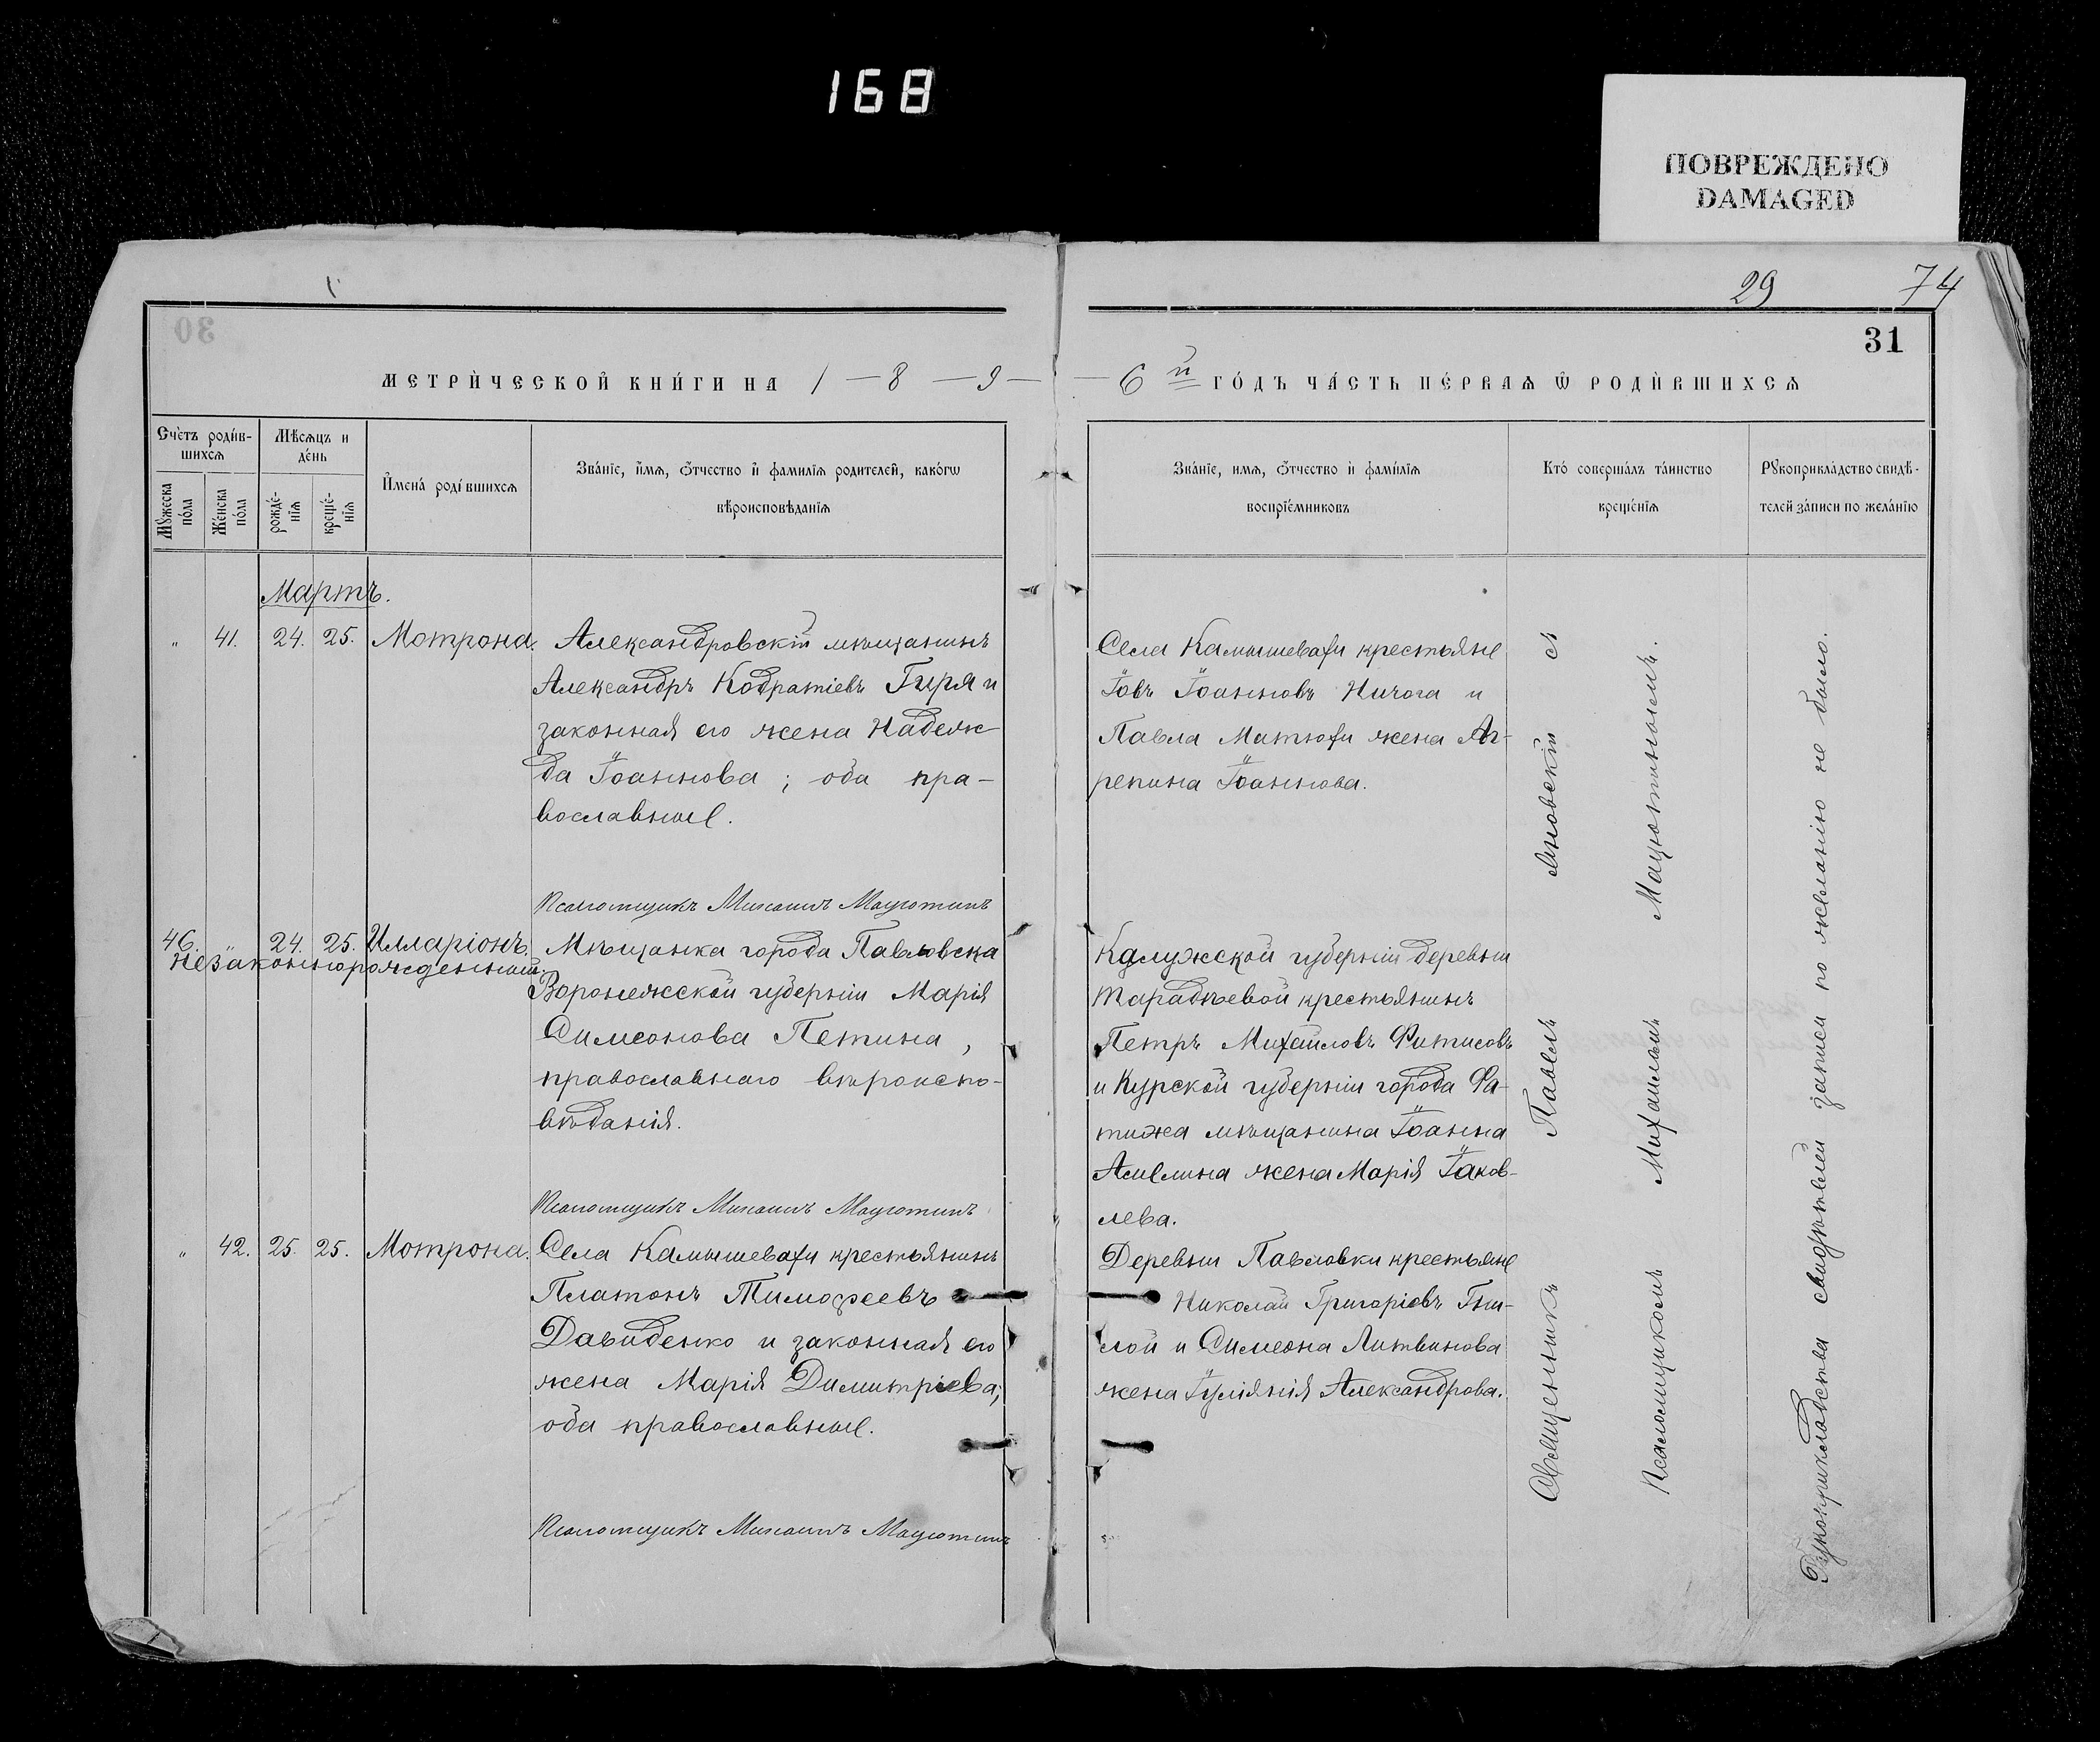 168
ПОВРЕЖДЕНО
DAMAGED
29 74
30
31
МЕТРИ́ЧЕСКОЙ КНИ́ГИ НА 1 — 8 — 9 —
— 6 й ГО́ДЪ ЧА́СТЬ ПЕ́РВАѦ Ѿ РОДИ́ВШИХСѦ
Сче́тъ роди́в-
шихсѧ
Мꙋ́жеска по́ла
Же́нска по́ла
Мѣ́сѧцъ и
де́нь
рожде́-
нїѧ
креще́-
нїѧ
И҆мена́ роди́вшихсѧ
Зва́нїе, и҆́мѧ, ѻ҆́тчество и҆ фами́лїѧ роди́телей, како́гѡ
вѣроисповѣ́данїѧ
Зва́нїе, и́мѧ, ѻ҆́тчество и҆ фами́лїѧ
воспрїе́мниковъ
Кто́ соверша́лъ та́инство
креще́нїѧ
Рꙋкоприкла́дство свидѣ́-
телей за́писи по жела́нїю
Мартъ.
" 41. 24. 25. Мотрона.
Александровскій мѣщанинъ
Александръ Кодратіевъ Гиря и
законная его жена Надеж-
да Іоаннова; оба пра-
вославные.
Псаломщикъ Михаилъ Мацютинъ
Села Камышевахи крестьяне
Іовъ Іоанновъ Ничога и
Павла Матюхи жена Аг-
репина Іоаннова.
46. " 24. 25. Илларіонъ.
незаконнорожденный.
Мѣщанка города Павловска
Воронежской губерніи Марія
Симеонова Петина,
православнаго вѣроиспо-
вѣданія.
Псаломщикъ Михаилъ Мацютинъ
Калужской губерніи деревни
Тарадѣевой крестьянинъ
Петръ Михайловъ Фитисовъ
и Курской губерніи города Фа-
тижа мѣщанина Іоанна
Амелина жена Марія Іаков-
лева.
" 42. 25. 25. Мотрона.
Села Камышевахи крестьянинъ
Платонъ Тимофеевъ
Давиденко и законная его
жена Марія Димитріева;
оба православные.
Псаломщикъ Михаилъ Мацютинъ
Деревни Павловки крестьяне
Николай Григоріевъ Гни-
лой и Симеона Литвинова
жена Іуліянія Александрова.
Священникъ Павелъ Яновскій съ
Псаломщикомъ Михаиломъ Мацютинымъ.
Рукоприкладства свидѣтелей записи по желанію не было.